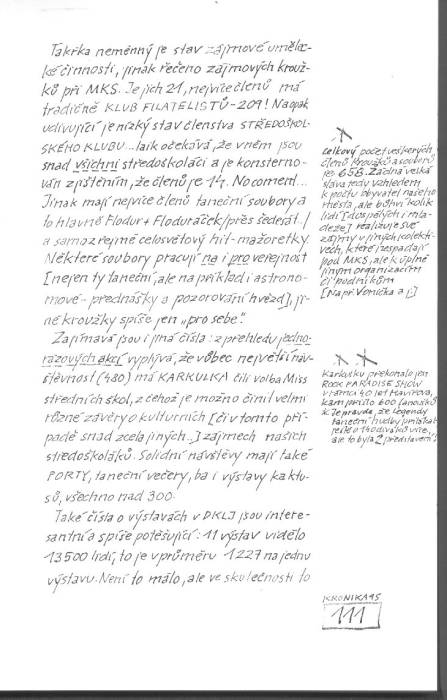 Takřka neměnný je stav zájmové umělec-
ké činnosti, jinak řečeno zájmových krouž-
ků při MKS. Je jich 21, nejvíce členů má
tradičně KLUB FILATELISTŮ - 209! Naopak
udivující je nízký stav členstva STŘEDOŠKOL-
SKÉHO KLUBU... laik očekává, že v něm jsou
snad všichni středoškoláci a je konsterno-
ván zjištěním, že členů je 14. No coment...
Jinak mají nejvíce členů taneční soubory a
to hlavně Flodur + Floduráček /přes šedesát./
a samozřejmě celosvětový hit - mažoretky.
Některé soubory pracují na i pro veřejnost
[nejen ty taneční, ale na příklad i astrono-
mové - přednášky a pozorování hvězd], ji-
né kroužky spíše jen „pro sebe".
Zajímavá jsou i jiná čísla: z přehledu jedno-
razových akcí vyplývá, že vůbec největší náv-
štěvnost (480) má KARKULKA čili volba Miss
středních škol, z čehož je možno činit velmi
různé závěry o kulturních [či v tomto pří-
padě snad zcela jiných..] zájmech našich
středoškoláků. Solidní návštěvy mají také
PORTY, taneční večery, ba i výstavy kaktu-
sů, všechno nad 300.
Také čísla o výstavách v DKLJ jsou intere-
santní a spíše potěšující: 11 výstav vidělo
13500 lidí, to je v průměru 1227 na jednu
výstavu. Není to málo, ale ve skutečnosti to
celkový počet veškerých
členů kroužků a souborů
je 658. Žádná velká
sláva tedy vzhledem
k počtu obyvatel našeho
města, ale bůhví kolik
lidí [dospělých i mlá-
deže] realizuje své
zájmy v jiných kolekti-
vech, které nespadají
pod MKS, ale k úplně
jiným organizacím
či podnikům
[Např. Vonička aj.]
Karkulku překonala jen
ROCK PARADISE SHOW
v rámci 40 let Havířova,
kam přišlo 600 fanoušků
Je pravda, že Legendy
taneční hudby přilákaly
ještě o 140 diváků více,
ale to byla 2 představení!
KRONIKA 95
111